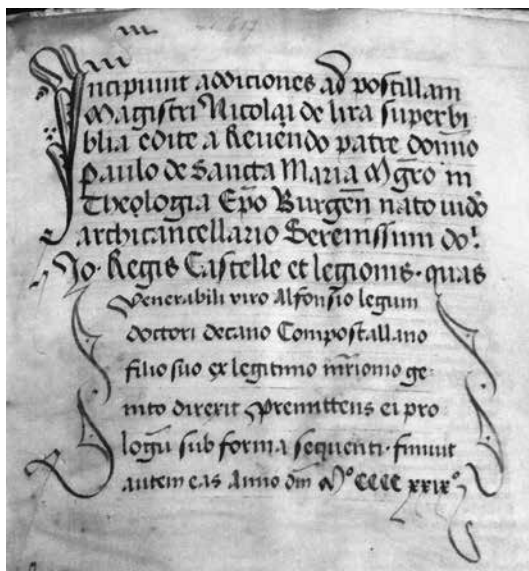 Incipiunt addiciones ad postillam
Magistri Nicolai de lira super bi
blia edite a Reuendo patre domino
paulo de Sancta Maria Mgro in
Theologia Epo Burgen nato iudo
archicancellario Serenissim do.
Jo. Regis Castelle et legionis. quas
Venerabili viro Alfonsio legum
doctori decano Compostallano
filio suo ex legitimo mrimonio ge
nito direxit Premittens ei pro
logu sub forma sequenti. finiuit
autem eas Anno dm Mº CCCC xxixº